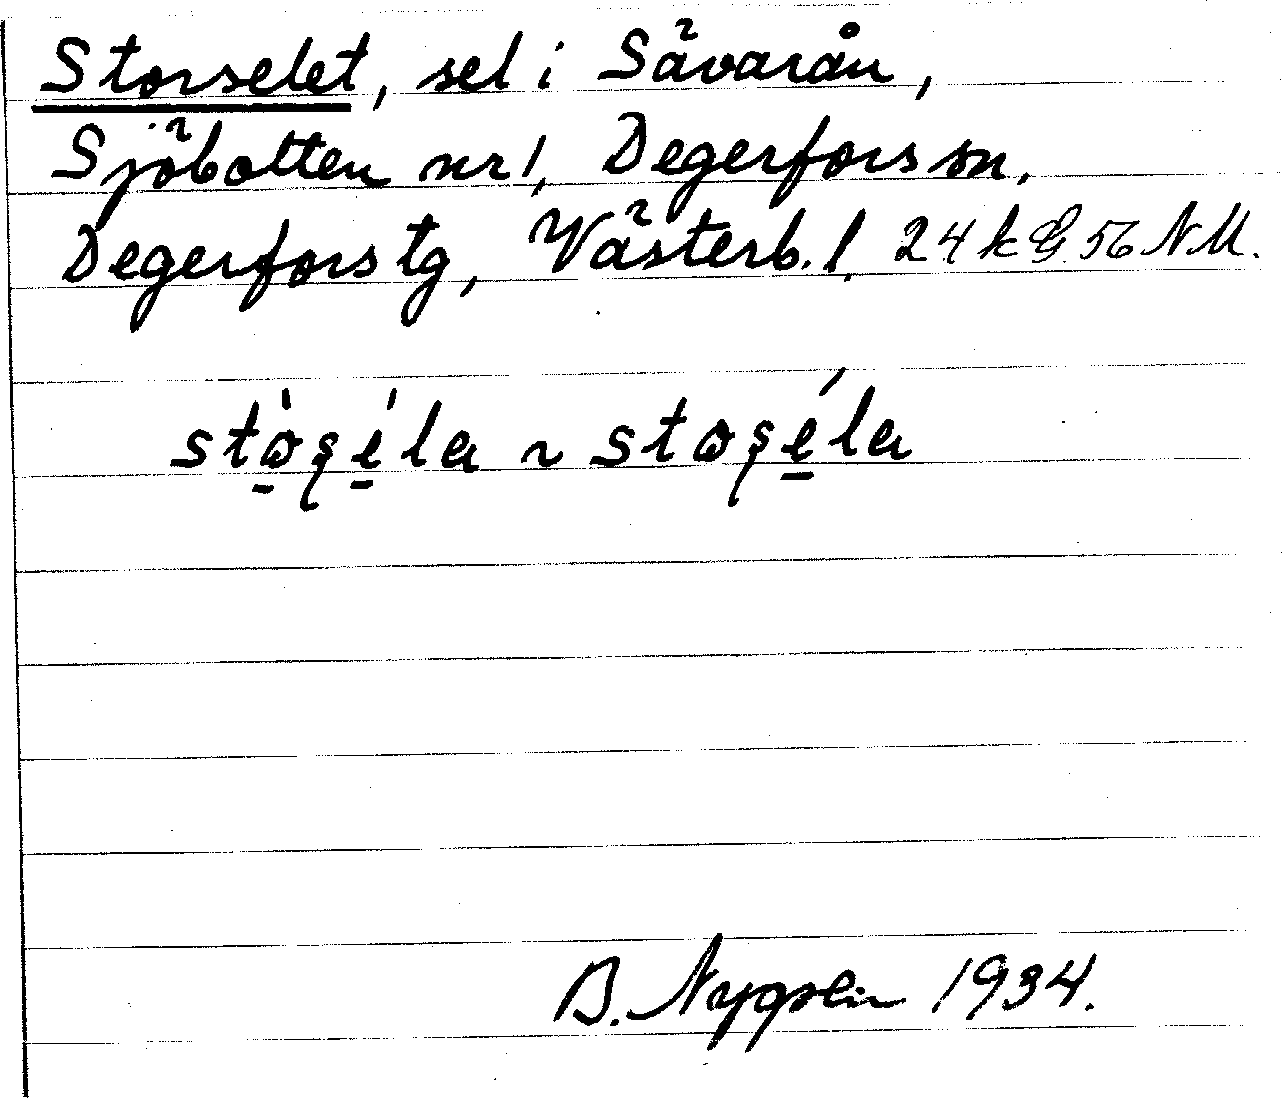 Storselet, sel i Sävarån,
Sjöbotten nr 1, Degerfors sn,
Degerfors tg, Västerb. l. 24k G 56 NM.
stò̱ʂé̱la ~ stoʂé̱la
B. 1934.